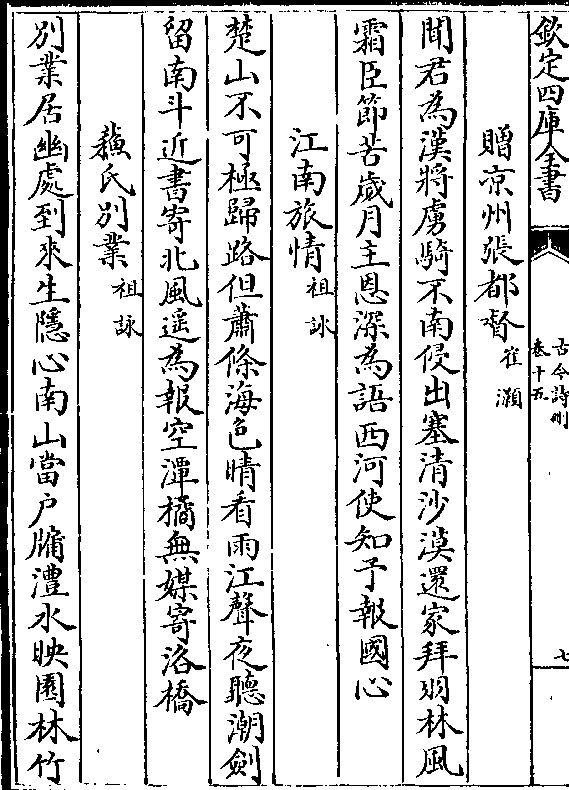 欽定四庫全書
古今詩刪
卷十五
七
贈凉州張都督 崔灝
聞君為漢將虜騎不南侵出塞清沙漠還家拜羽林風
霜臣節苦歲月主恩深為語西河使知予報國心
江南旅情 祖詠
楚山不可極歸路但蕭條海色晴看雨江聲夜聽潮劍
留南斗近書寄北風遥為報空潭橘無媒寄洛橋
蘓氏別業 祖詠
別業居幽處到來生隱心南山當户牖灃水映園林竹